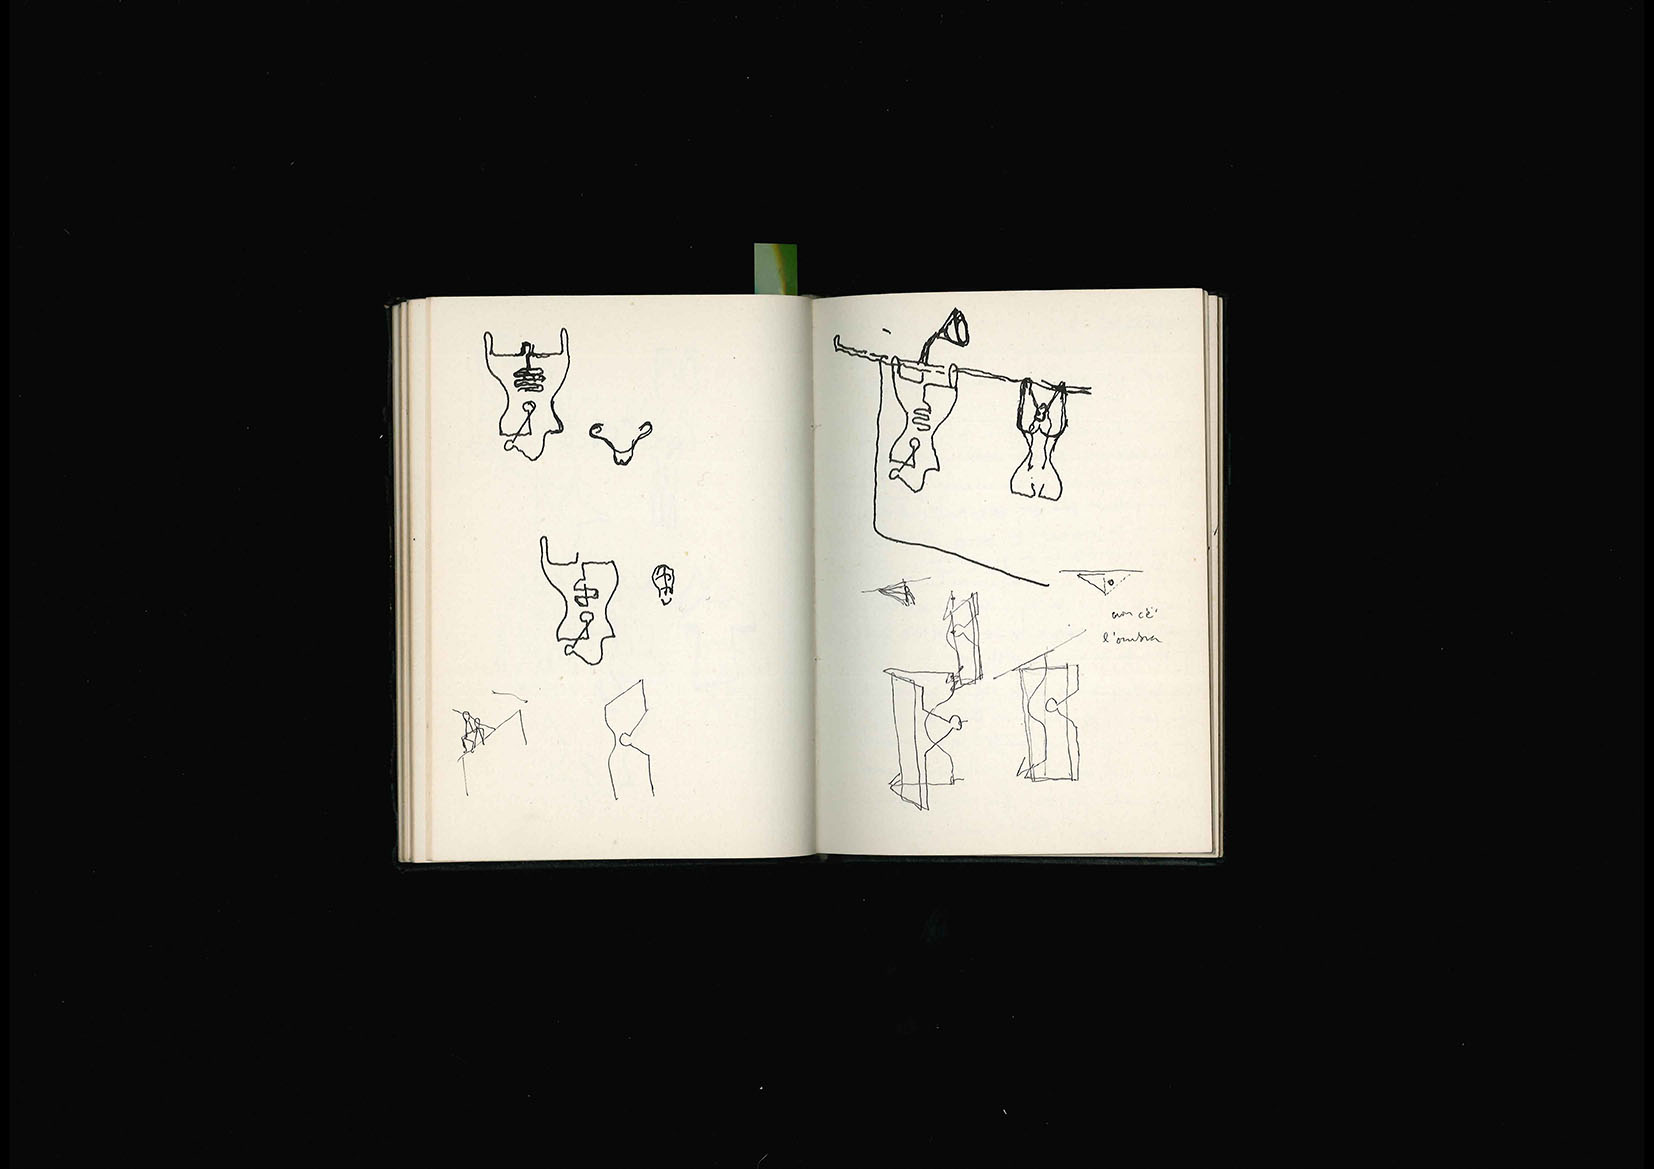 non c'è
l'ombra